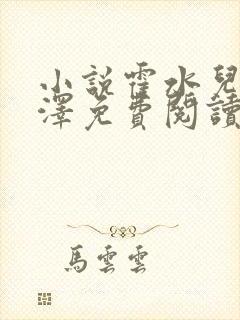 小說霍水兒
澤免費閱讀
馬雲雲